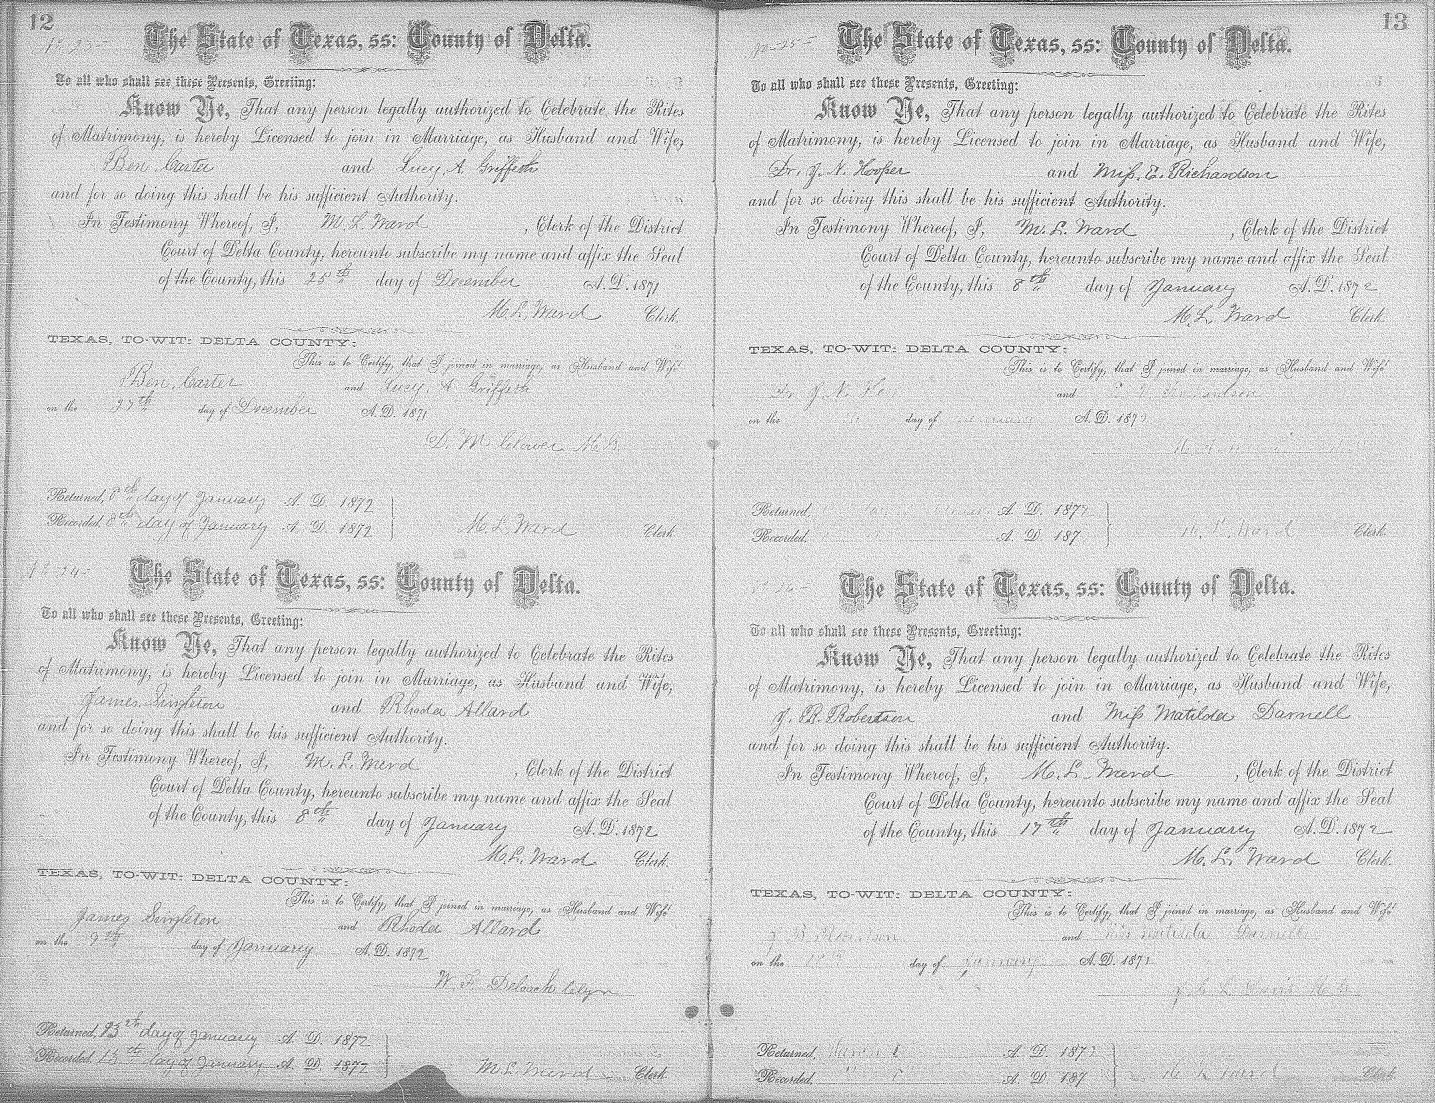 12
No 23
The State of Texas, ss: County of Delta.
To all who shall see these Presents, Greeting:
Know Ye, That any person legally authorized to Celebrate the Rites
of Matrimony, is hereby Licensed to join in Marriage, as Husband and Wife,
Ben. Carter and Lucy. A. Griffeth
and for so doing this shall be his sufficient Authority.
In Testimony Whereof, I, M. L. Ward, Clerk of the District
Court of Delta County, hereunto subscribe my name and affix the Seal
of the County, this 25th day of December A.D. 1871
M. L. Ward Clerk.
TEXAS, TO-WIT: DELTA COUNTY:
This is to Certify, that I joined in marriage, as Husband and Wife
Ben. Carter and Lucy A Griffeth
on the 27th day of December A.D. 1871
D. M.
Returned, 8th day of January A. D. 1872
Recorded, 8th day of January A. D. 1872 M. L. Ward Clerk
No 24
The State of Texas, ss: County of Delta.
To all who shall see these Presents, Greeting:
Know Ye, That any person legally authorized to Celebrate the Rites
of Matrimony, is hereby Licensed to join in Marriage, as Husband and Wife,
James Singleton and Rhoda Allard
and for so doing this shall be his sufficient Authority.
In Testimony Whereof, I, M. L. Ward, Clerk of the District
Court of Delta County, hereunto subscribe my name and affix the Seal
of the County, this 8th day of January A.D. 1872
M. L. Ward Clerk.
TEXAS, TO-WIT: DELTA COUNTY:
This is to Certify, that I joined in marriage, as Husband and Wife
James Singleton and Rhoda Allard
on the 9th day of January A.D. 1872
W. F. Deloach
Returned, 25th day of January A. D. 1872
Recorded, 25th day of January A. D. 1872 M L Ward Clerk
13
No 25
The State of Texas, ss: County of Delta.
To all who shall see these Presents, Greeting:
Know Ye, That any person legally authorized to Celebrate the Rites
of Matrimony, is hereby Licensed to join in Marriage, as Husband and Wife,
Dr. J. N. Hooper and Miss. E. Richardson
and for so doing this shall be his sufficient Authority.
In Testimony Whereof, I, M. L. Ward, Clerk of the District
Court of Delta County, hereunto subscribe my name and affix the Seal
of the County, this 8th day of January A.D. 1872
M. L Ward Clerk.
TEXAS, TO-WIT: DELTA COUNTY:
This is to Certify, that I joined in marriage, as Husband and Wife
Dr J. N. and
on the day of A.D. 187
Returned, A. D. 187
Recorded. A. D. 187 M. L. Ward Clerk
No 26
The State of Texas, ss: County of Delta.
To all who shall see these Presents, Greeting:
Know Ye, That any person legally authorized to Celebrate the Rites
of Matrimony, is hereby Licensed to join in Marriage, as Husband and Wife,
J. R. Robertson and Miss Matilda Darnell
and for so doing this shall be his sufficient Authority.
In Testimony Whereof, I, M. L. Ward, Clerk of the District
Court of Delta County, hereunto subscribe my name and affix the Seal
of the County, this 17th day of January A.D. 1872
M. L. Ward Clerk.
TEXAS, TO-WIT: DELTA COUNTY:
This is to Certify, that I joined in marriage, as Husband and Wife
Robertson and Miss Matilda Darnell
on the day of January A.D. 187
Returned, March A. D. 187
Recorded. A. D. 187 M L Ward Clerk